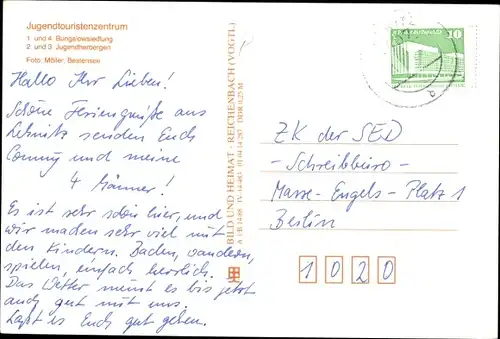 Jugendtouristenzentrum
1 und 4 Bungalowsiedlung
2 und 3 Jugendherbergen
Foto: Möller, Bestensee
Hallo Ihr Lieben!
Schöne Feriengrüße aus
Lebnitz senden Euch
Conny und meine
4 Männer!
Es ist sehr schön hier, und
wir machen sehr viel mit
den Kindern. Baden, wandern,
spielen, einfach herrlich.
Das Wetter meint es bis jetzt
auch gut mit uns.
Laßt es Euch gut gehen.
BILD UND HEIMAT · REICHENBACH (VOGTL)
A 1/B 1488 IV-14-483 01 04 14 287 DDR 0,25 M
10
ZK der SED
- Schreibbüro -
Marx-Engels-Platz 1
Berlin
1020